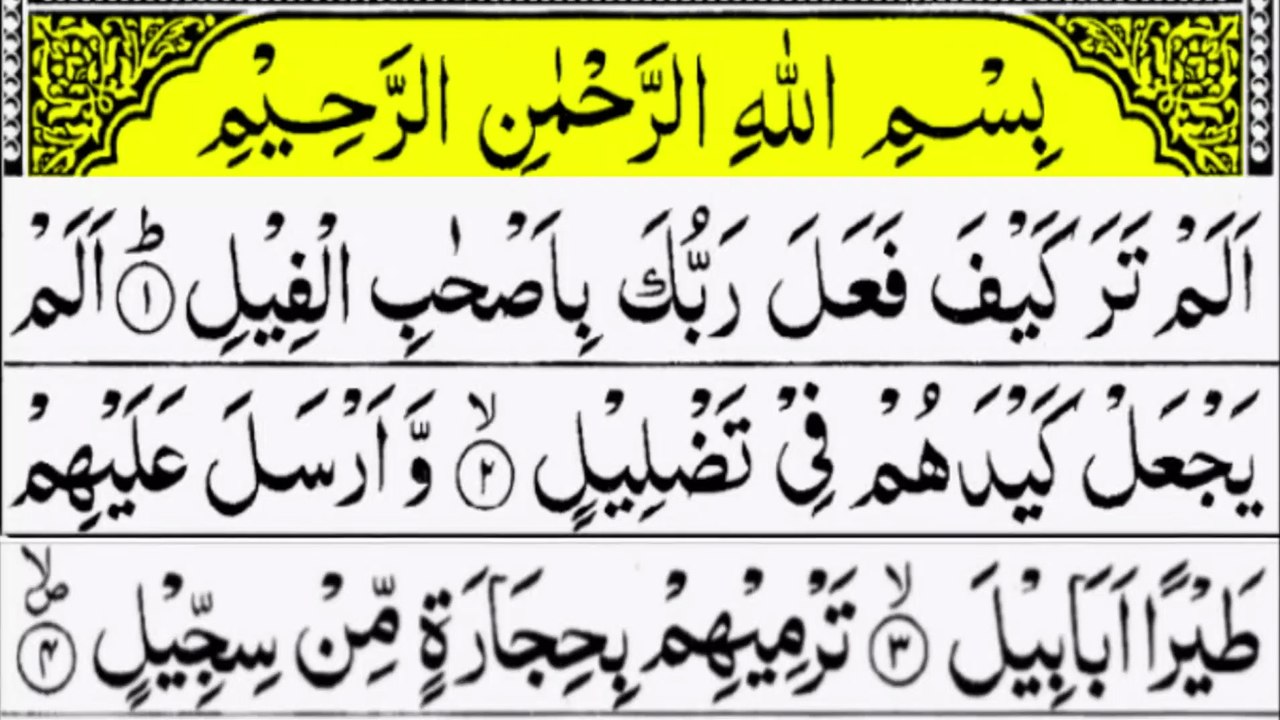 بِسْمِ اللّٰهِ الرَّحْمٰنِ الرَّحِيْمِ
اَلَمْ تَرَ كَيْفَ فَعَلَ رَبُّكَ بِاَصْحٰبِ الْفِيْلِ ؕ ۝۱ اَلَمْ
يَجْعَلْ كَيْدَهُمْ فِيْ تَضْلِيْلٍ ۙ ۝۲ وَّ اَرْسَلَ عَلَيْهِمْ
طَيْرًا اَبَابِيْلَ ۙ ۝۳ تَرْمِيْهِمْ بِحِجَارَةٍ مِّنْ سِجِّيْلٍ ۙ ۪ ۝۴